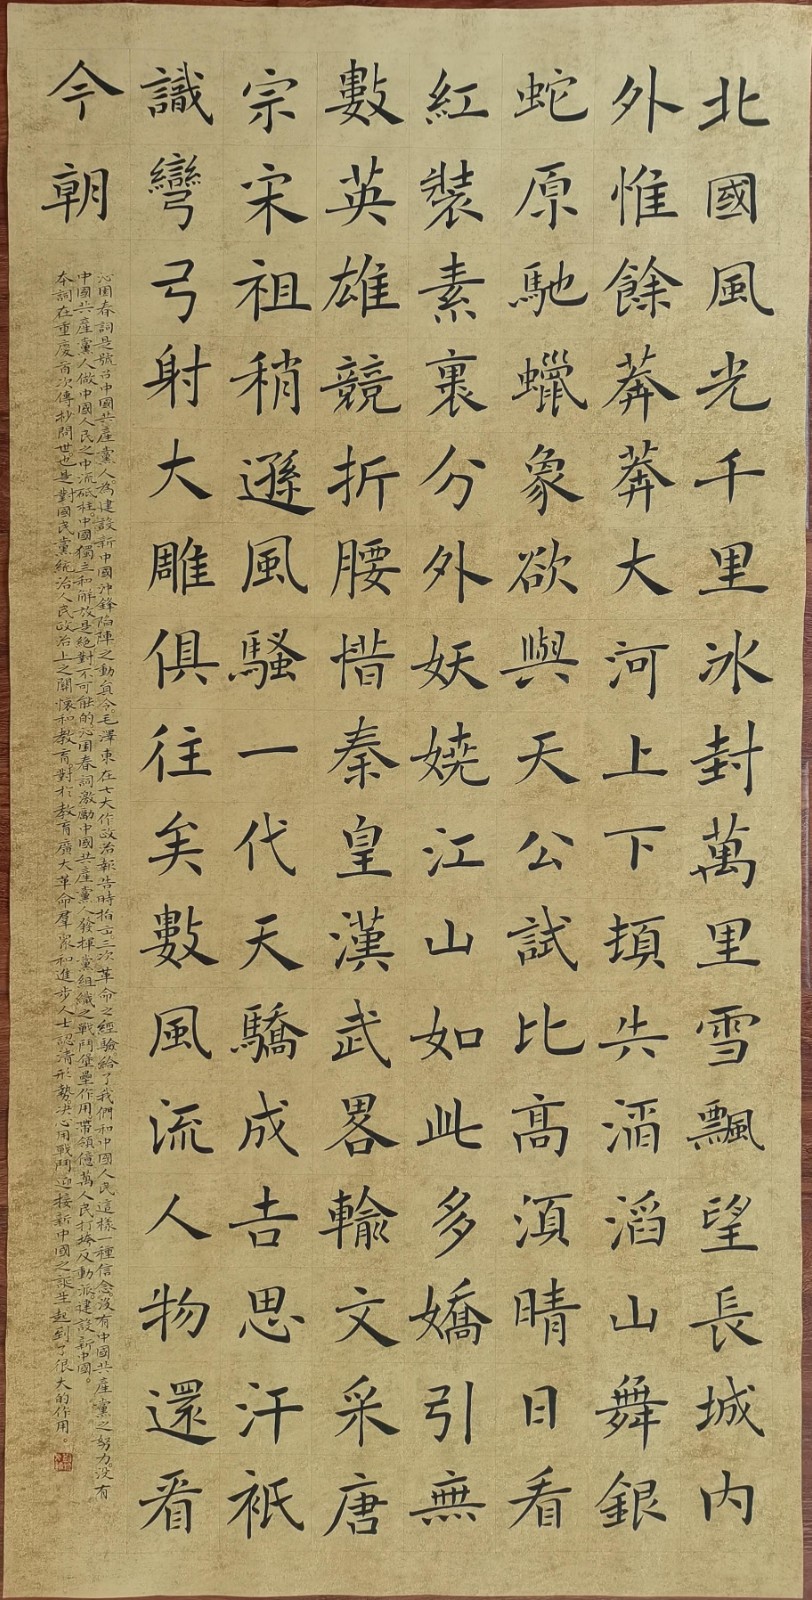 北國風光千里冰封萬里雪飄望長城內
外惟餘莽莽大河上下頓失滔滔山舞銀
蛇原馳蠟象欲與天公試比高須晴日看
紅裝素裹分外妖嬈江山如此多嬌引無
數英雄競折腰惜秦皇漢武畧輸文采唐
宗宋祖稍遜風騷一代天驕成吉思汗祇
識彎弓射大雕俱往矣數風流人物還看
今朝
沁園春詞是號召中國共產黨人為建設新中國沖鋒陷陣之動員令毛澤東在七大作政治報告時指言三次革命之經驗給了我們和中國人民這樣一種信念沒有中國共產黨之努力沒有
中國共產黨人做中國人民之中流砥柱中國獨立和解放是絕對不可能的沁園春詞激勵中國共產黨人發揮黨組織之戰鬥堡壘作用帶領億萬人民打垮反動派建設新中國。
本詞在重慶首次傳抄問世也是對國民黨統治人民政治上之關懷和教育對於教育廣大革命羣眾和進步人士認清形勢決心用戰鬥迎接新中國之誕生起到了很大的作用。